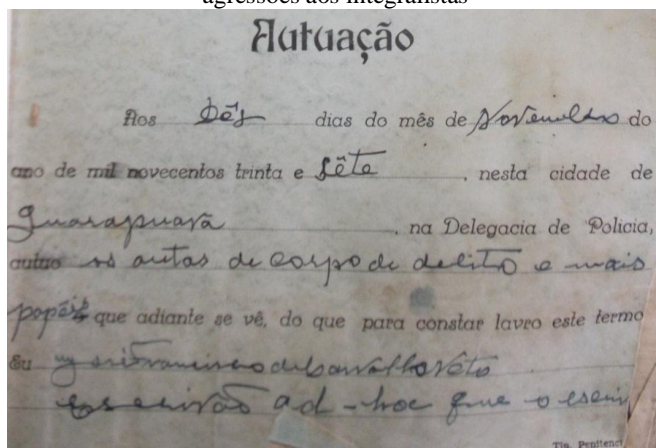 agressões aos integralistas
Autuação
Aos Dês dias do mês de Novembro do
ano de mil novecentos trinta e sête, nesta cidade de
Guarapuava, na Delegacia de Policia,
autúo os autos de corpo de delito e mais
papéis que adiante se vê, do que para constar lavro este termo
Eu Francisco de Carvalho Neto
escrivão ad-hoc que o
Tip. Penitenci